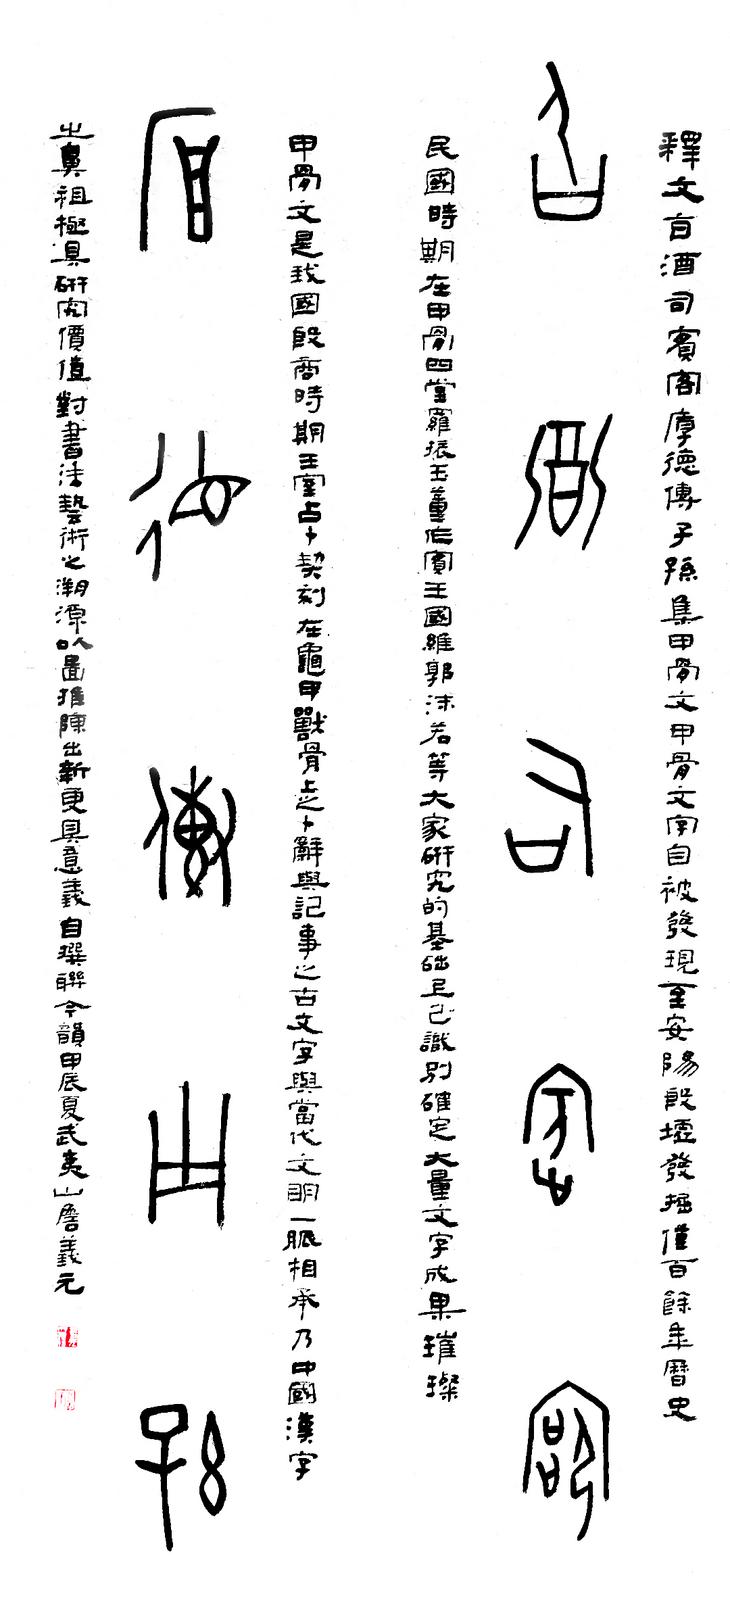 釋文旨酒司賓客厚德傳子孫集甲骨文甲骨文字自被發現至安陽殷墟發掘僅百餘年曆史
旨酒司賓客
民國時期在甲骨四堂羅振玉董作賓王國維郭沫若等大家研究的基础上已識別確定大量文字成果璀璨
甲骨文是我國殷商時期王室占卜契刻在龜甲獸骨上之卜辭與記事之古文字與當代文明一脈相承乃中國漢字
厚德傳子孫
之鼻祖極具研究價值對書法藝術之溯源以啚推陳出新更具意義自撰聯今韻甲辰夏武夷山詹義元